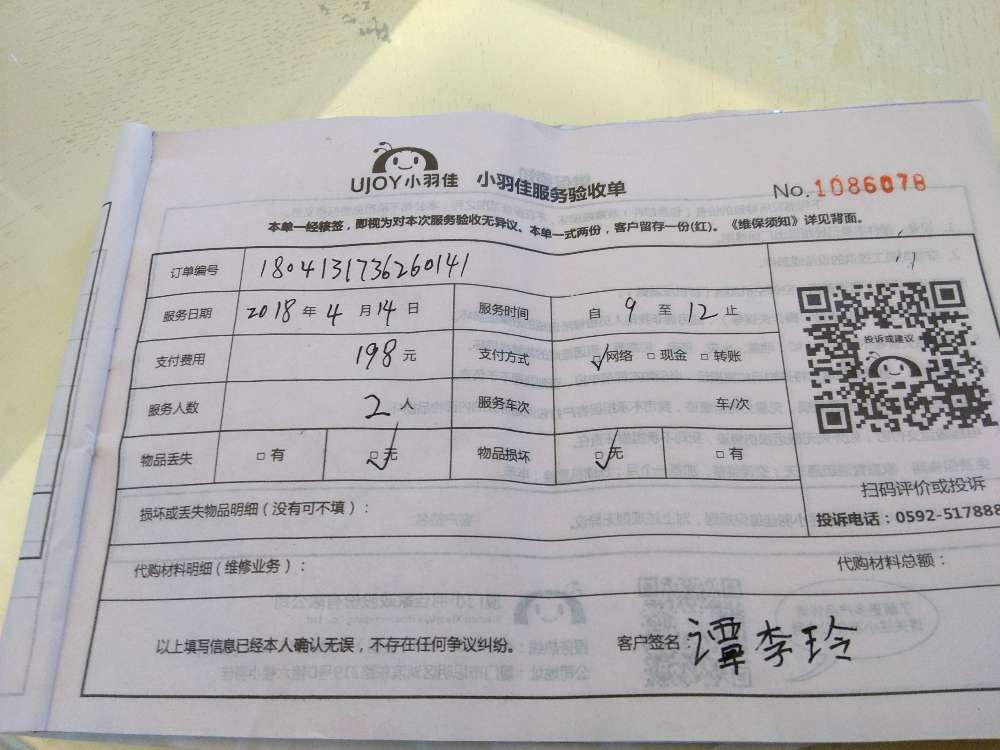 UJOY小羽佳 小羽佳服务验收单 No.1086078
本单一经核签，即视为对本次服务验收无异议、本单一式两份，客户留存一份(红)。《维保须知》详见背面。
订单编号 1804131736260141
服务日期 2018年4月14日 服务时间 自9至12止
支付费用 198元 支付方式 ☑网络 □现金 □转账
服务人数 2人 服务车次 车/次
物品丢失 □有 ☑无 物品损坏 ☑无 □有
投诉或建议
扫码评价或投诉
损坏或丢失物品明细（没有可不填）：
投诉电话：0592-517888
代购材料明细（维修业务）： 代购材料总额：
以上填写信息已经本人确认无误，不存在任何争议纠纷。 客户签名：谭李玲